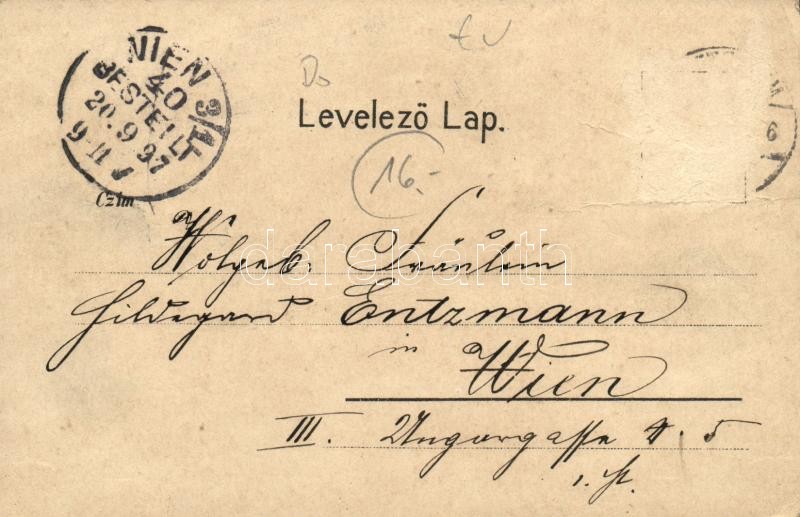 WIEN 3/1
40
BESTELLT
20.9.97
9-11 V
Levelező Lap.
16.-
Czím
darabanth
Wolgeb. Fräulein
Hildegard Entzmann
in
Wien
III. Ungargasse 4. 5
1. St.